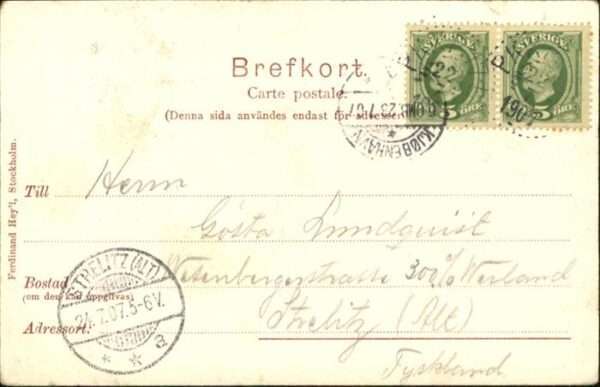 Brefkort.
Carte postale.
(Denna sida användes endast för adressen.)
SVERIGE
5 ÖRE
SVERIGE
5 ÖRE
190
KJØBENHAVN
23.7.07
Ferdinand Hey'l, Stockholm.
Till Herrn
Gösta Lundquist
Bostad
(om den kan uppgifvas)
Adressort: Strelitz (Alt)
Tyskland
STRELITZ (ALT)
24.7.07.5-6V.
* * a